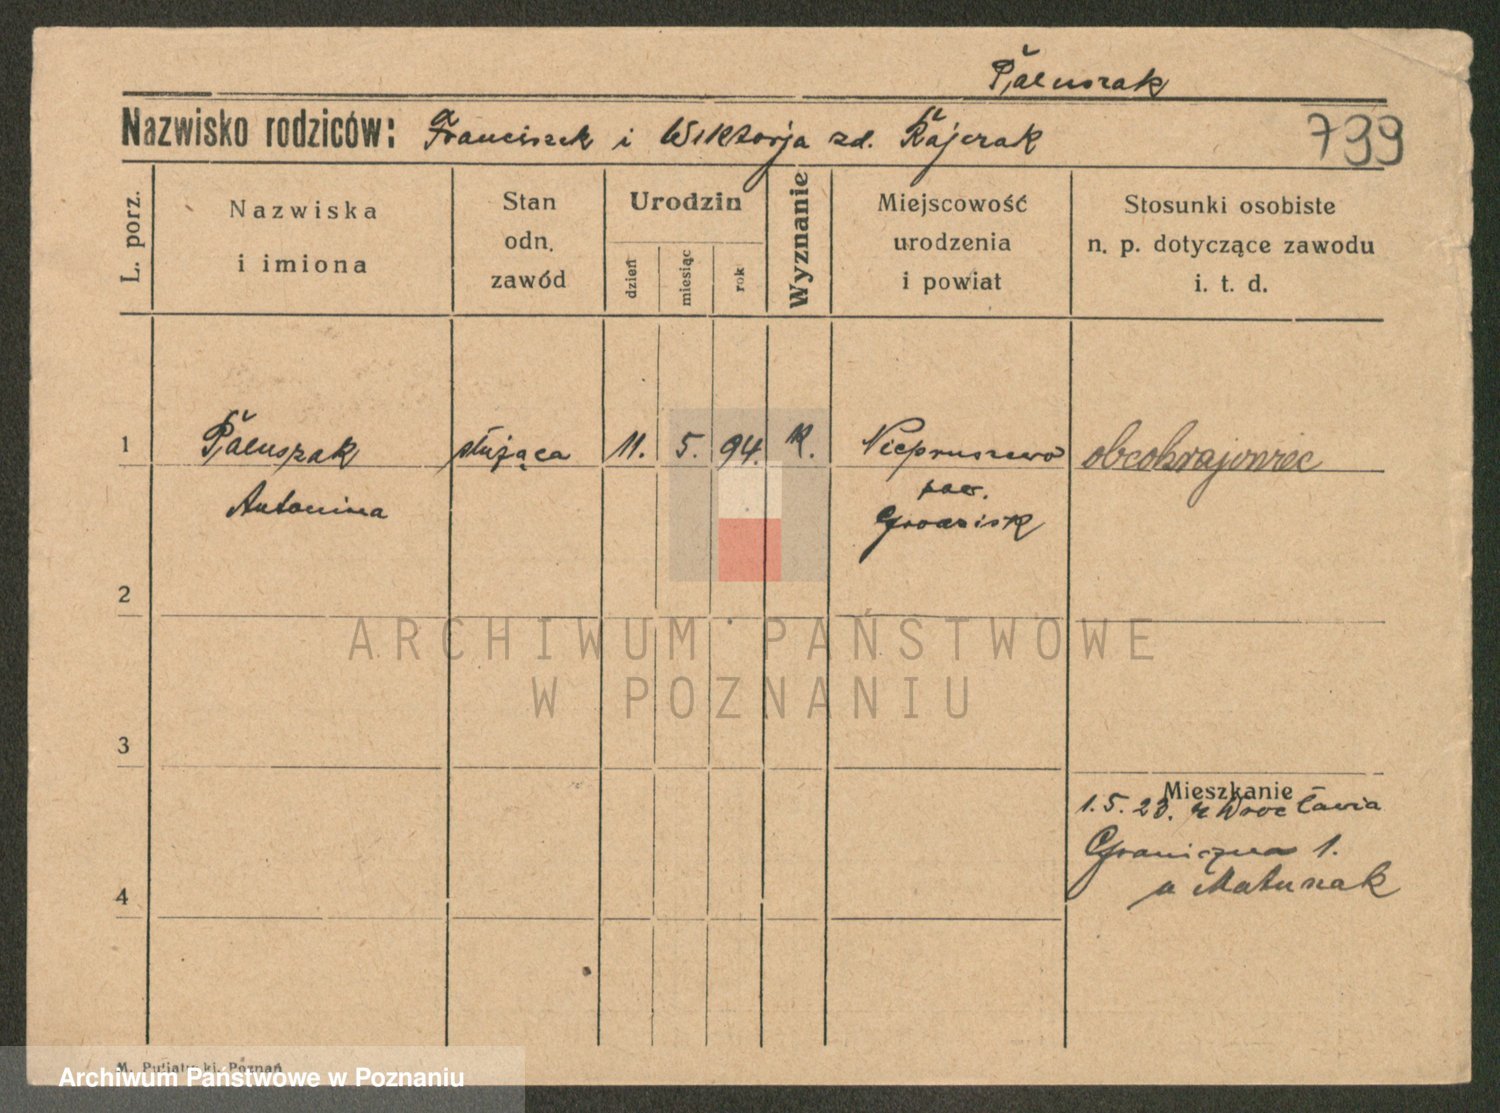 Paluszak
Nazwisko rodziców: Franciszek i Wiktorja zd. Rajczak
799
L. porz.
Nazwiska
i imiona
Stan
odn.
zawód
Urodzin
dzień
miesiąc
rok
Wyznanie
Miejscowość
urodzenia
i powiat
Stosunki osobiste
n. p. dotyczące zawodu
i. t. d.
1 Paluszak służąca 11. 5. 94. k. Niepruszewo obcokrajowiec
Antonina pow.
Grodzisk
2
3
4
Mieszkanie
1.5.23. z Wrocławia
Graniczna 1.
u Matuszak
ARCHIWUM PAŃSTWOWE
W POZNANIU
Poznań
Archiwum Państwowe w Poznaniu